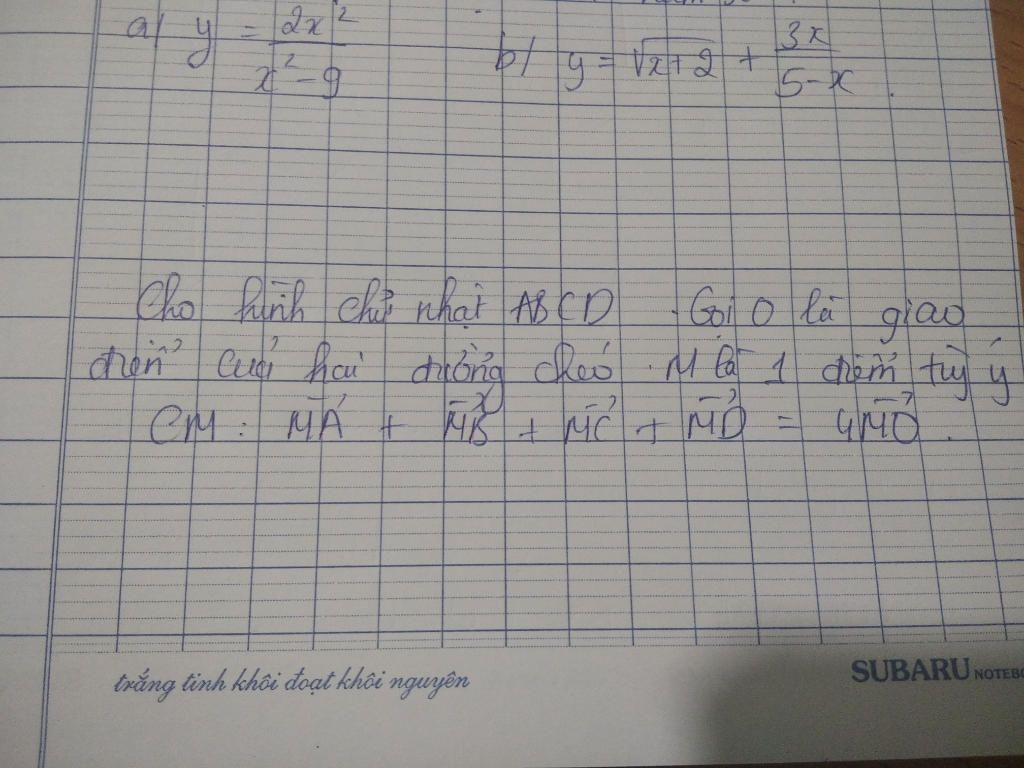 a) y = 2x² / x² - 9 b) y = √x+2 + 3x / 5-x .
Cho hình chữ nhật ABCD . Gọi O là giao
điểm của hai đường chéo . M là 1 điểm tuỳ ý
CM : MA + MB + MC + MD = 4MO .
trắng tinh khôi đoạt khôi nguyên
SUBARU NOTEBO